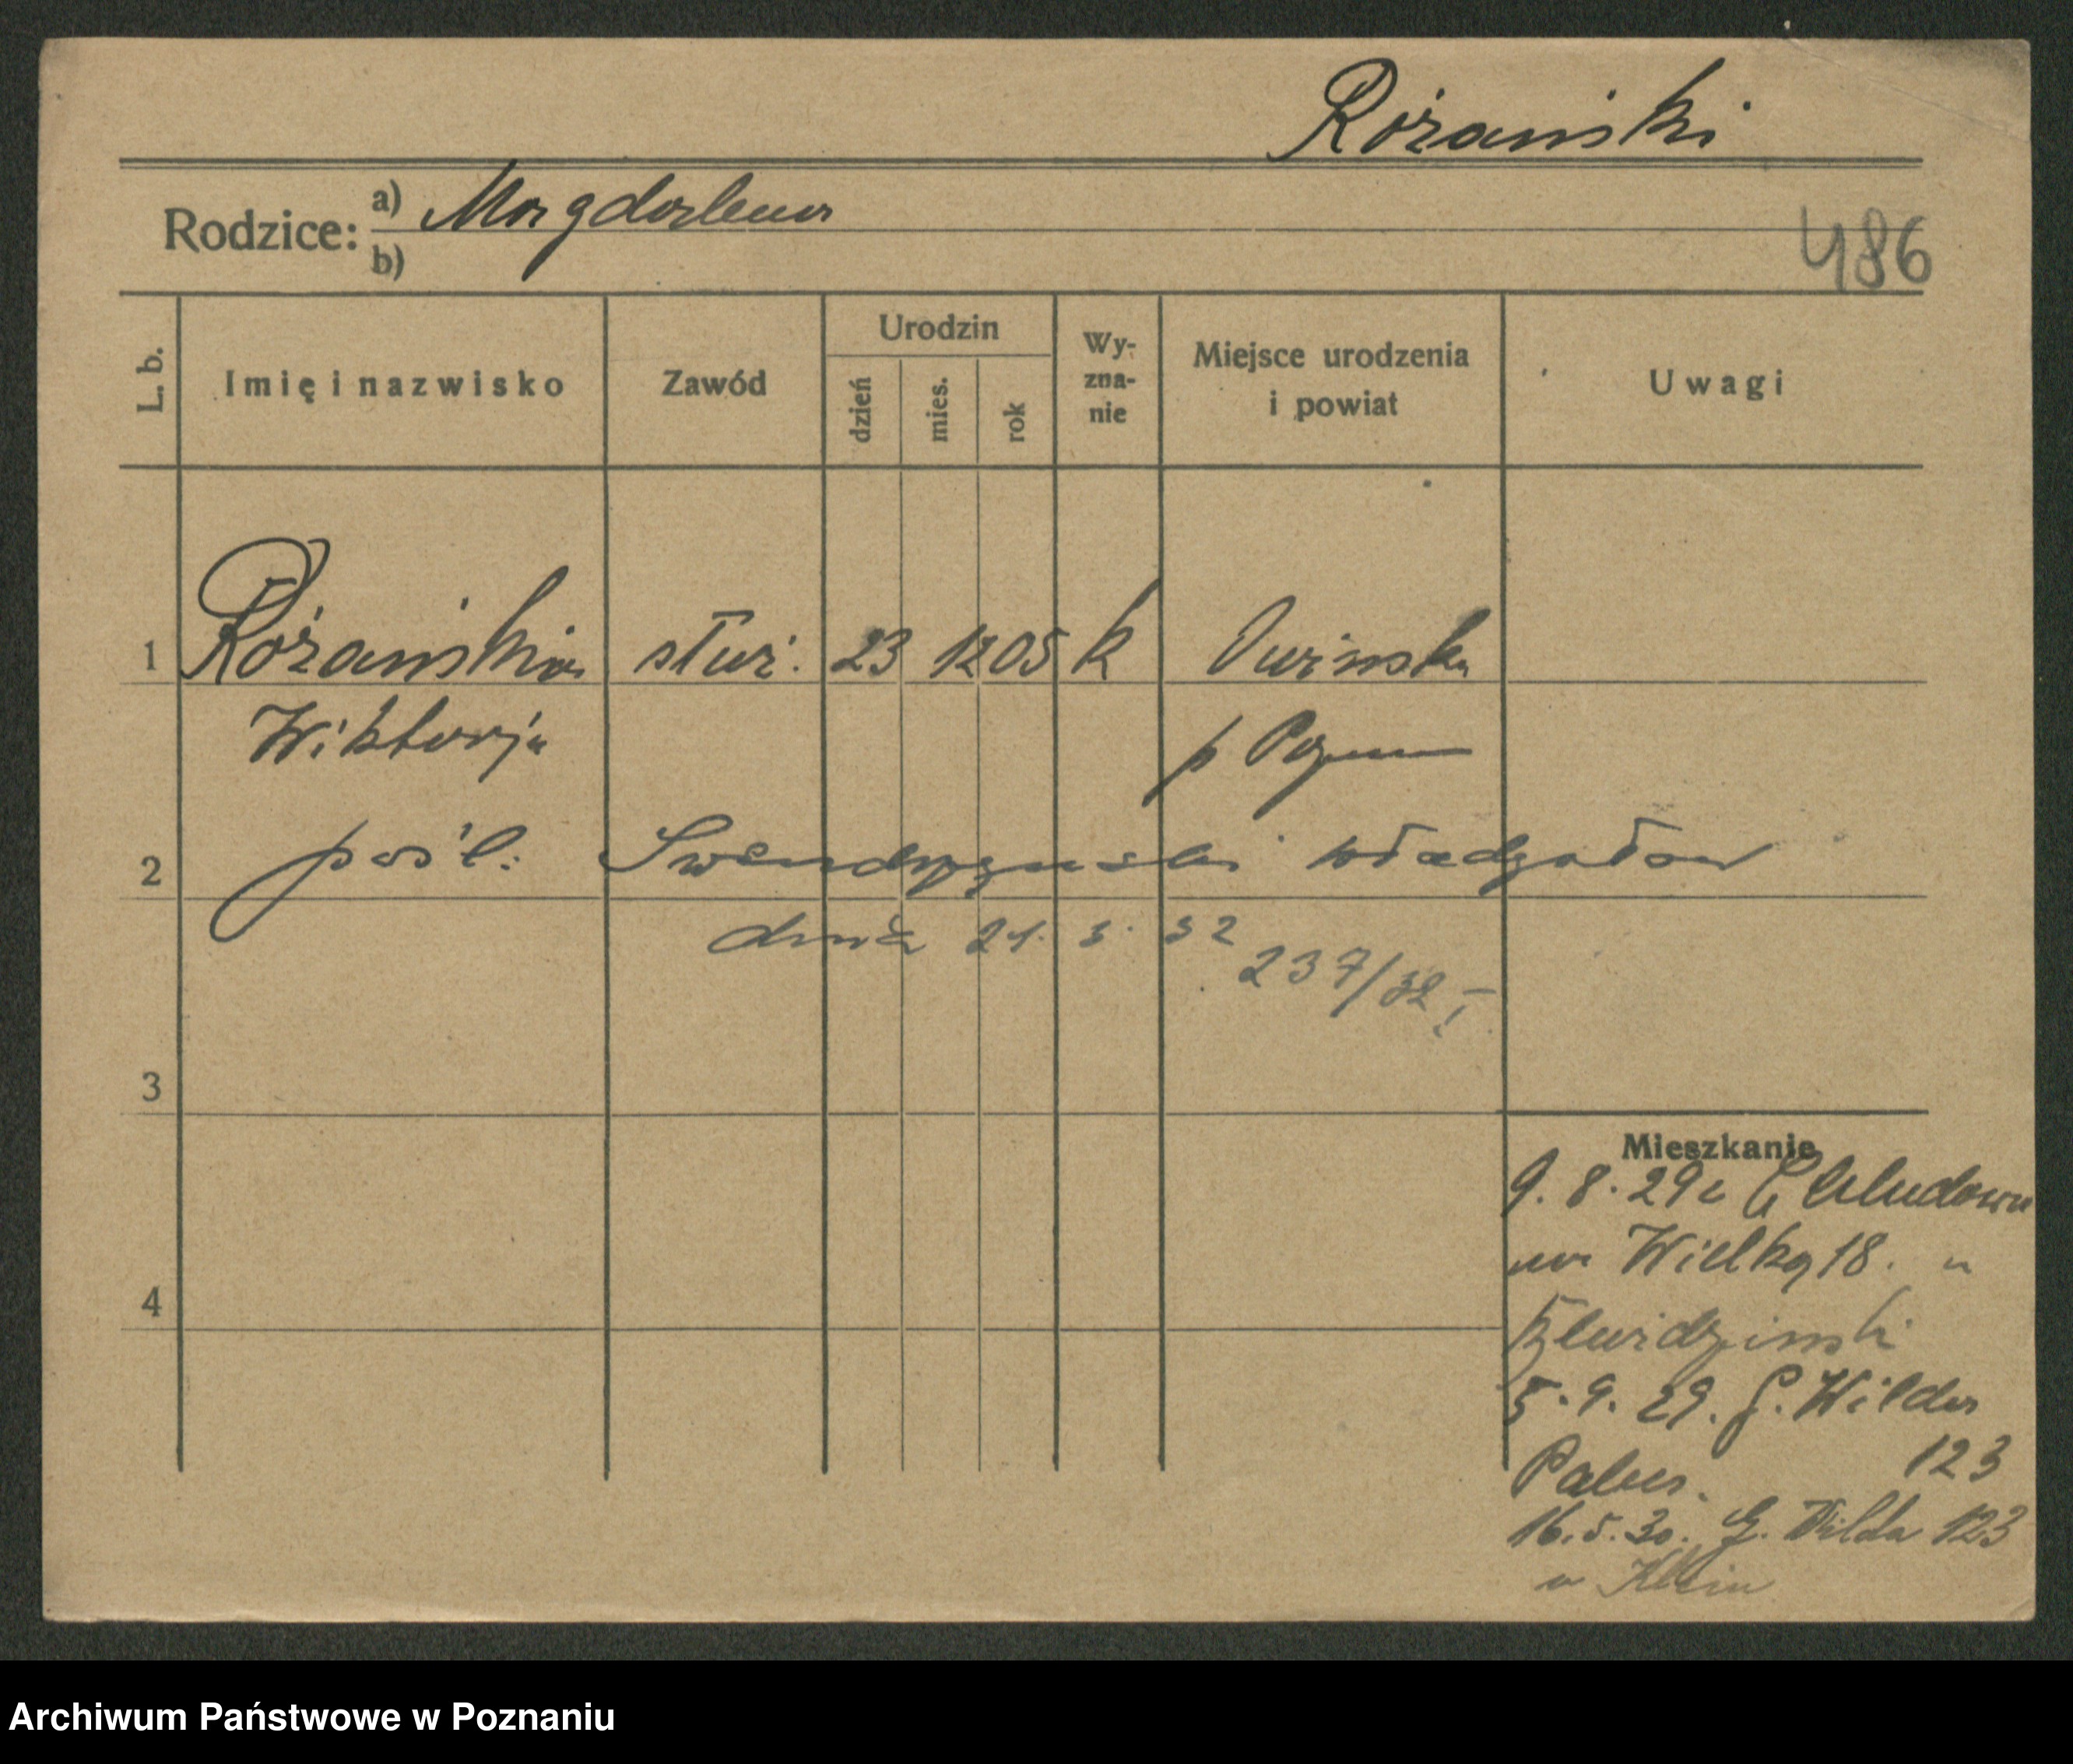 Różański
Rodzice: a) Magdalena
b)
486
L. b. Imię i nazwisko Zawód Urodzin dzień mies. rok Wyznanie Miejsce urodzenia i powiat Uwagi
1 Różańska służ. 23 12 05 k Owińska
Wiktorja p Pozn
2 pośl: władysław
dnia 21. 3. 32
237/32 I
3
Mieszkanie
9. 8. 29 z Chludowa
na Wielką 18. u
4
5. 9. 29. G. Wilda
123
16. 5. 30. G. Wilda 123
u Klein
Archiwum Państwowe w Poznaniu